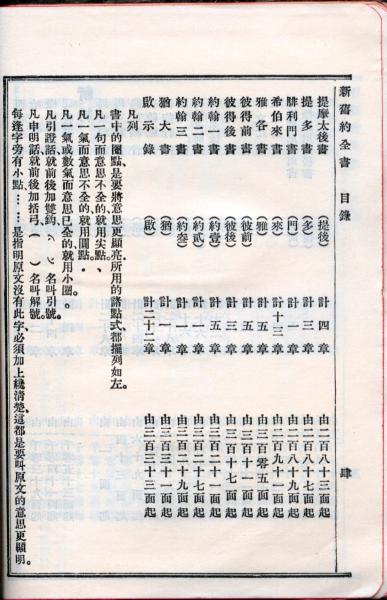 新舊約全書 目錄 肆
提摩太後書 (提後) 計四章 由二百八十三面起
提多書 (多) 計三章 由二百八十七面起
腓利門書 (門) 計一章 由二百八十九面起
希伯來書 (來) 計十三章 由二百九十一面起
雅各書 (雅) 計五章 由三百零五面起
彼得前書 (彼前) 計五章 由三百十一面起
彼得後書 (彼後) 計三章 由三百十七面起
約翰一書 (約壹) 計五章 由三百二十一面起
約翰二書 (約貳) 計一章 由三百二十七面起
約翰三書 (約叁) 計一章 由三百二十九面起
猶大書 (猶) 計一章 由三百三十一面起
啟示錄 (啟) 計二十二章 由三百三十三面起
凡列
書中的圈點、是要將意思更顯亮。所用的諸點式、都擺列如左。
凡一句而意思不全的、就用尖點、
凡一氣而意思不全的、就用圓點．
凡一氣或數氣而意思已全的、就用小圈。
凡引證話、就前後加雙鈎、﹁ ﹂名叫引號。
凡申明話、就前後加括弓、( )名叫解號。
每逢字旁有小點……是指明原文沒有此字、必須加上纔清楚、這都是要叫原文的意思更顯明。